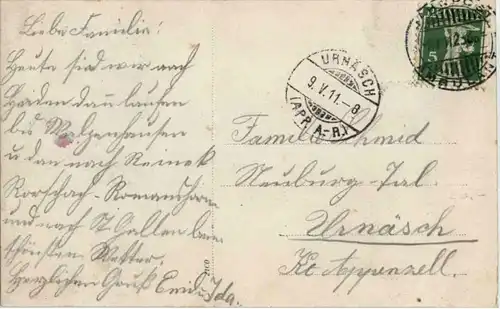 Liebe Familie!
Heute sind wir nach
Heiden dan laufen
bis Walzenhausen
u dan nach Reinek
Rorschach - Romanshorn
und nach St Gallen beim
schönsten Wetter.
Herzlichen Gruß Emil u Ida.
URNÄSCH
9.V.11.-8
(APP. A.-R.)
5
Familie
Neuburg-Tal.
Urnäsch
Kt Appenzell.